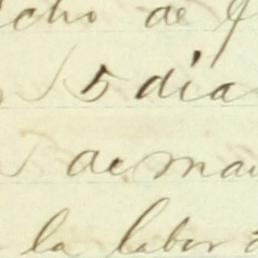 cho de
5 dia
de ma
la labor